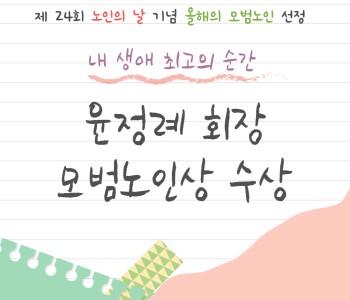 제 24회 노인의 날 기념 올해의 모범노인 선정
내 생애 최고의 순간
윤정례 회장
모범노인상 수상